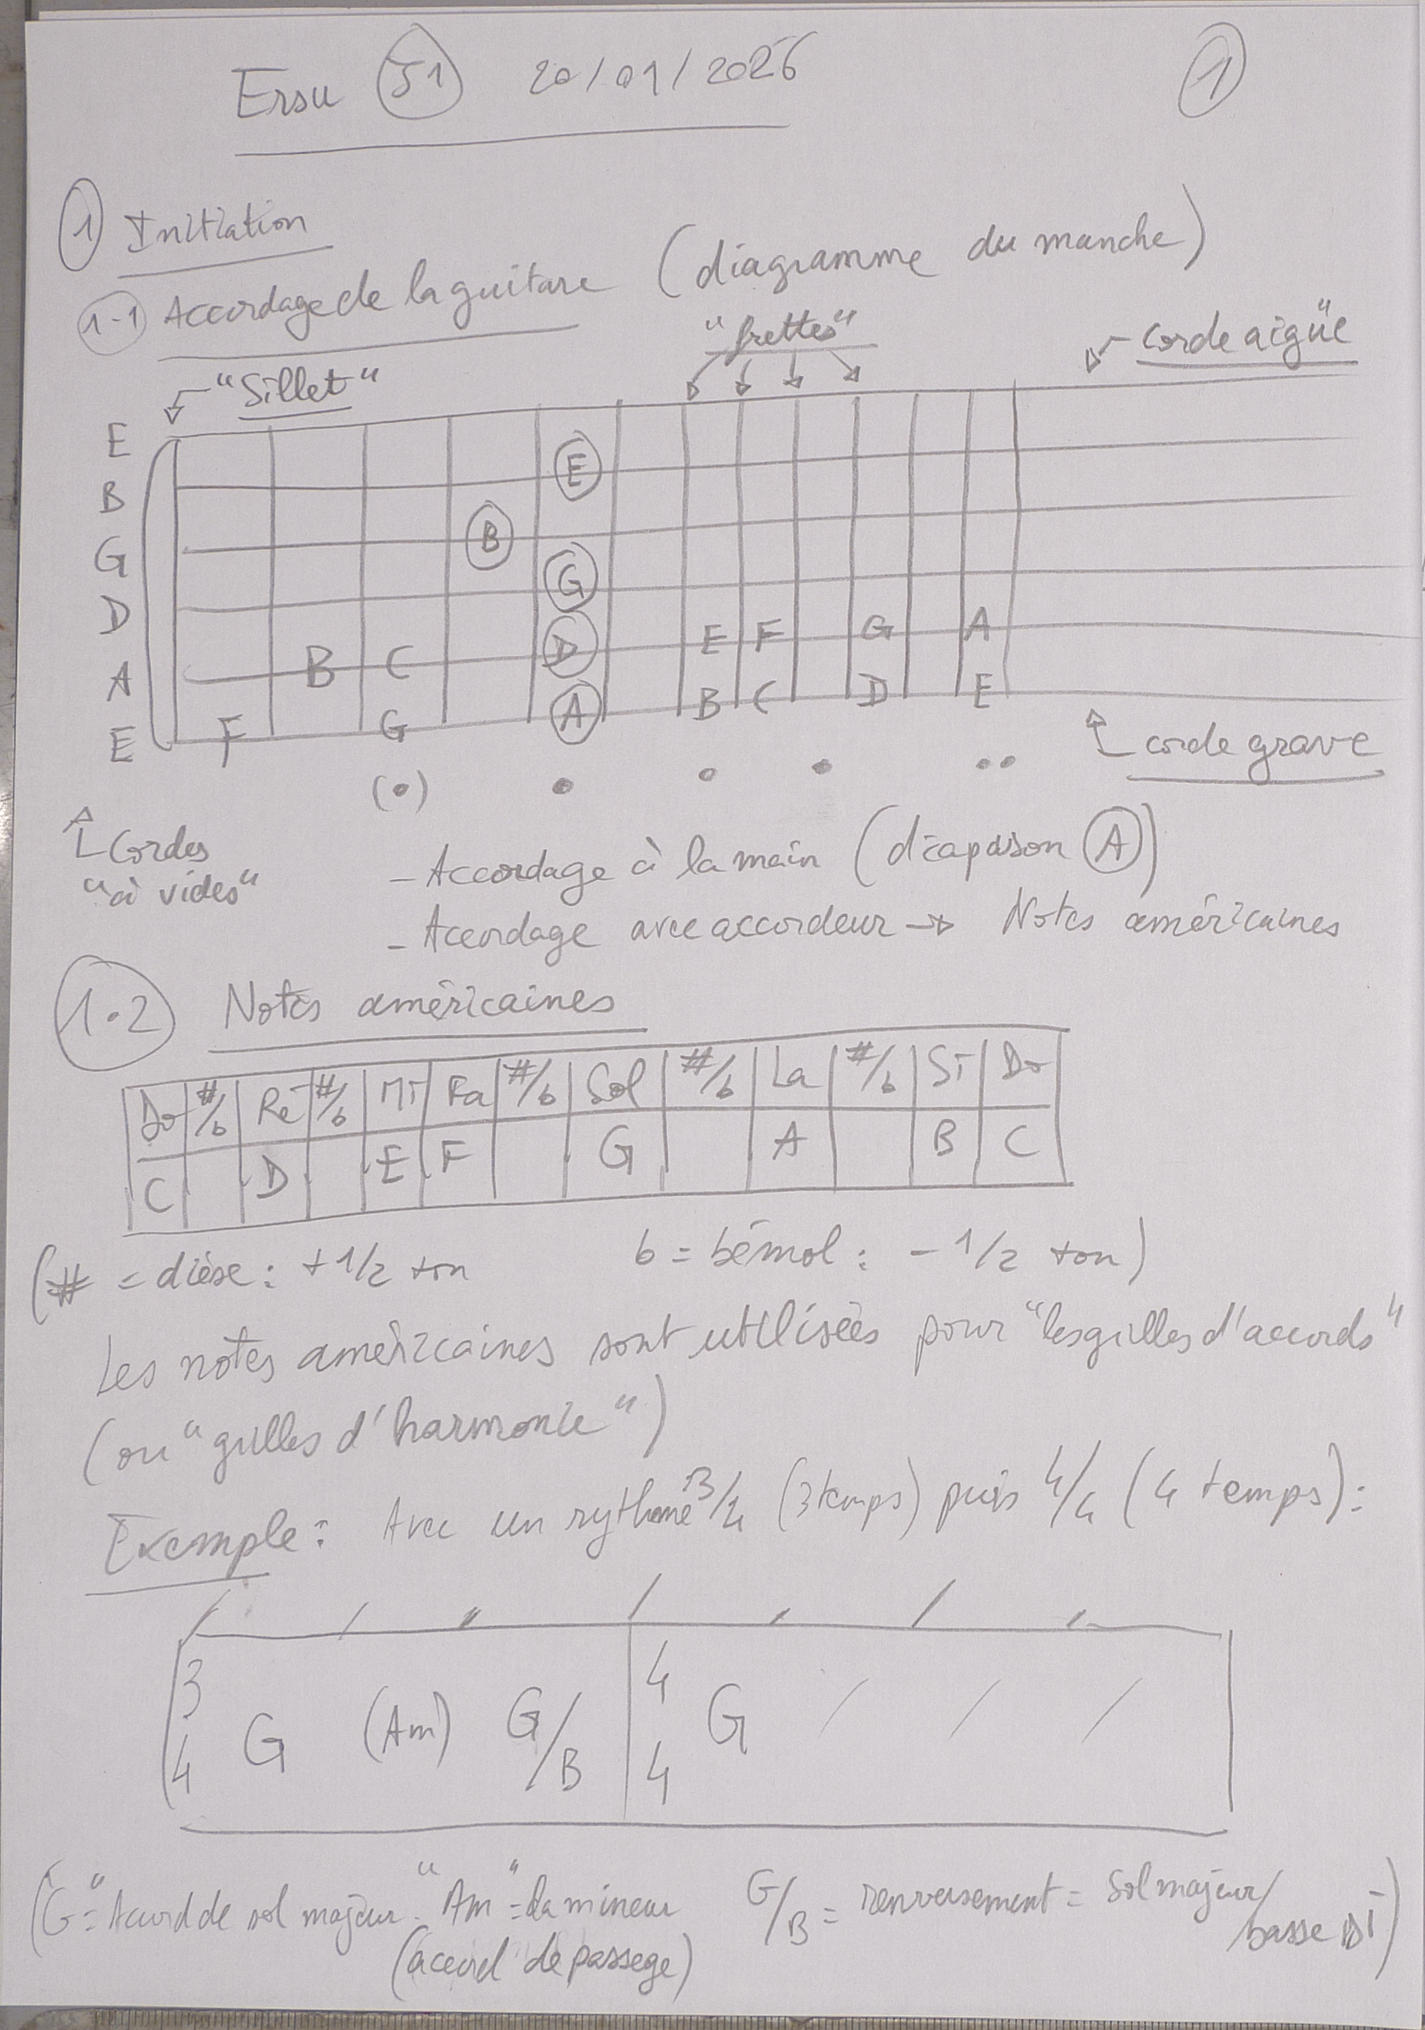 Ersu S1 20/01/2026 1
1 Initiation
1-1 Accordage de la guitare (diagramme du manche)
"Sillet" "frettes" corde aigüe
E
B
G
D
A
E
E
B
G
D E F G A
B C A B C D E
F G
(•) • • • ••
corde grave
Cordes
"à vides"
- Accordage à la main (diapason A)
- Acordage avec accordeur → Notes américaines
1.2 Notes américaines
Do #/b Ré #/b Mi Fa #/b Sol #/b La #/b Si Do
C D E F G A B C
(# = dièse : +1/2 ton b = bémol : -1/2 ton)
Les notes américaines sont utilisées pour "les grilles d'accords"
(ou "grilles d'harmonie")
Exemple : Avec un rythme 3/4 (3 temps) puis 4/4 (4 temps) :
/ / / / / / /
3 4 G (Am) G/B 4 4 G / / /
(G = "Accord de sol majeur". "Am" = La mineur G/B = renversement = Sol majeur/
(accord de passage) basse Si)